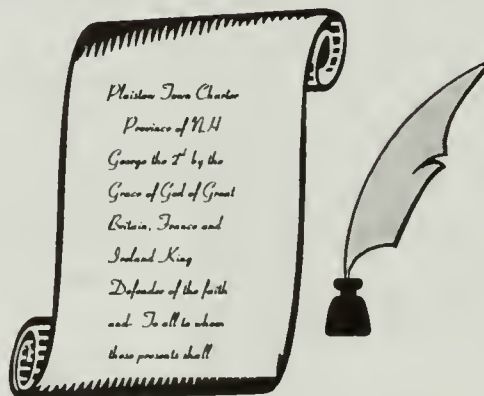 Plaistow Town Charter
Province of N.H
George the 2d by the
Grace of God of Great
Britain, France and
Ireland King
Defender of the faith
and. To all to whom
these presents shall